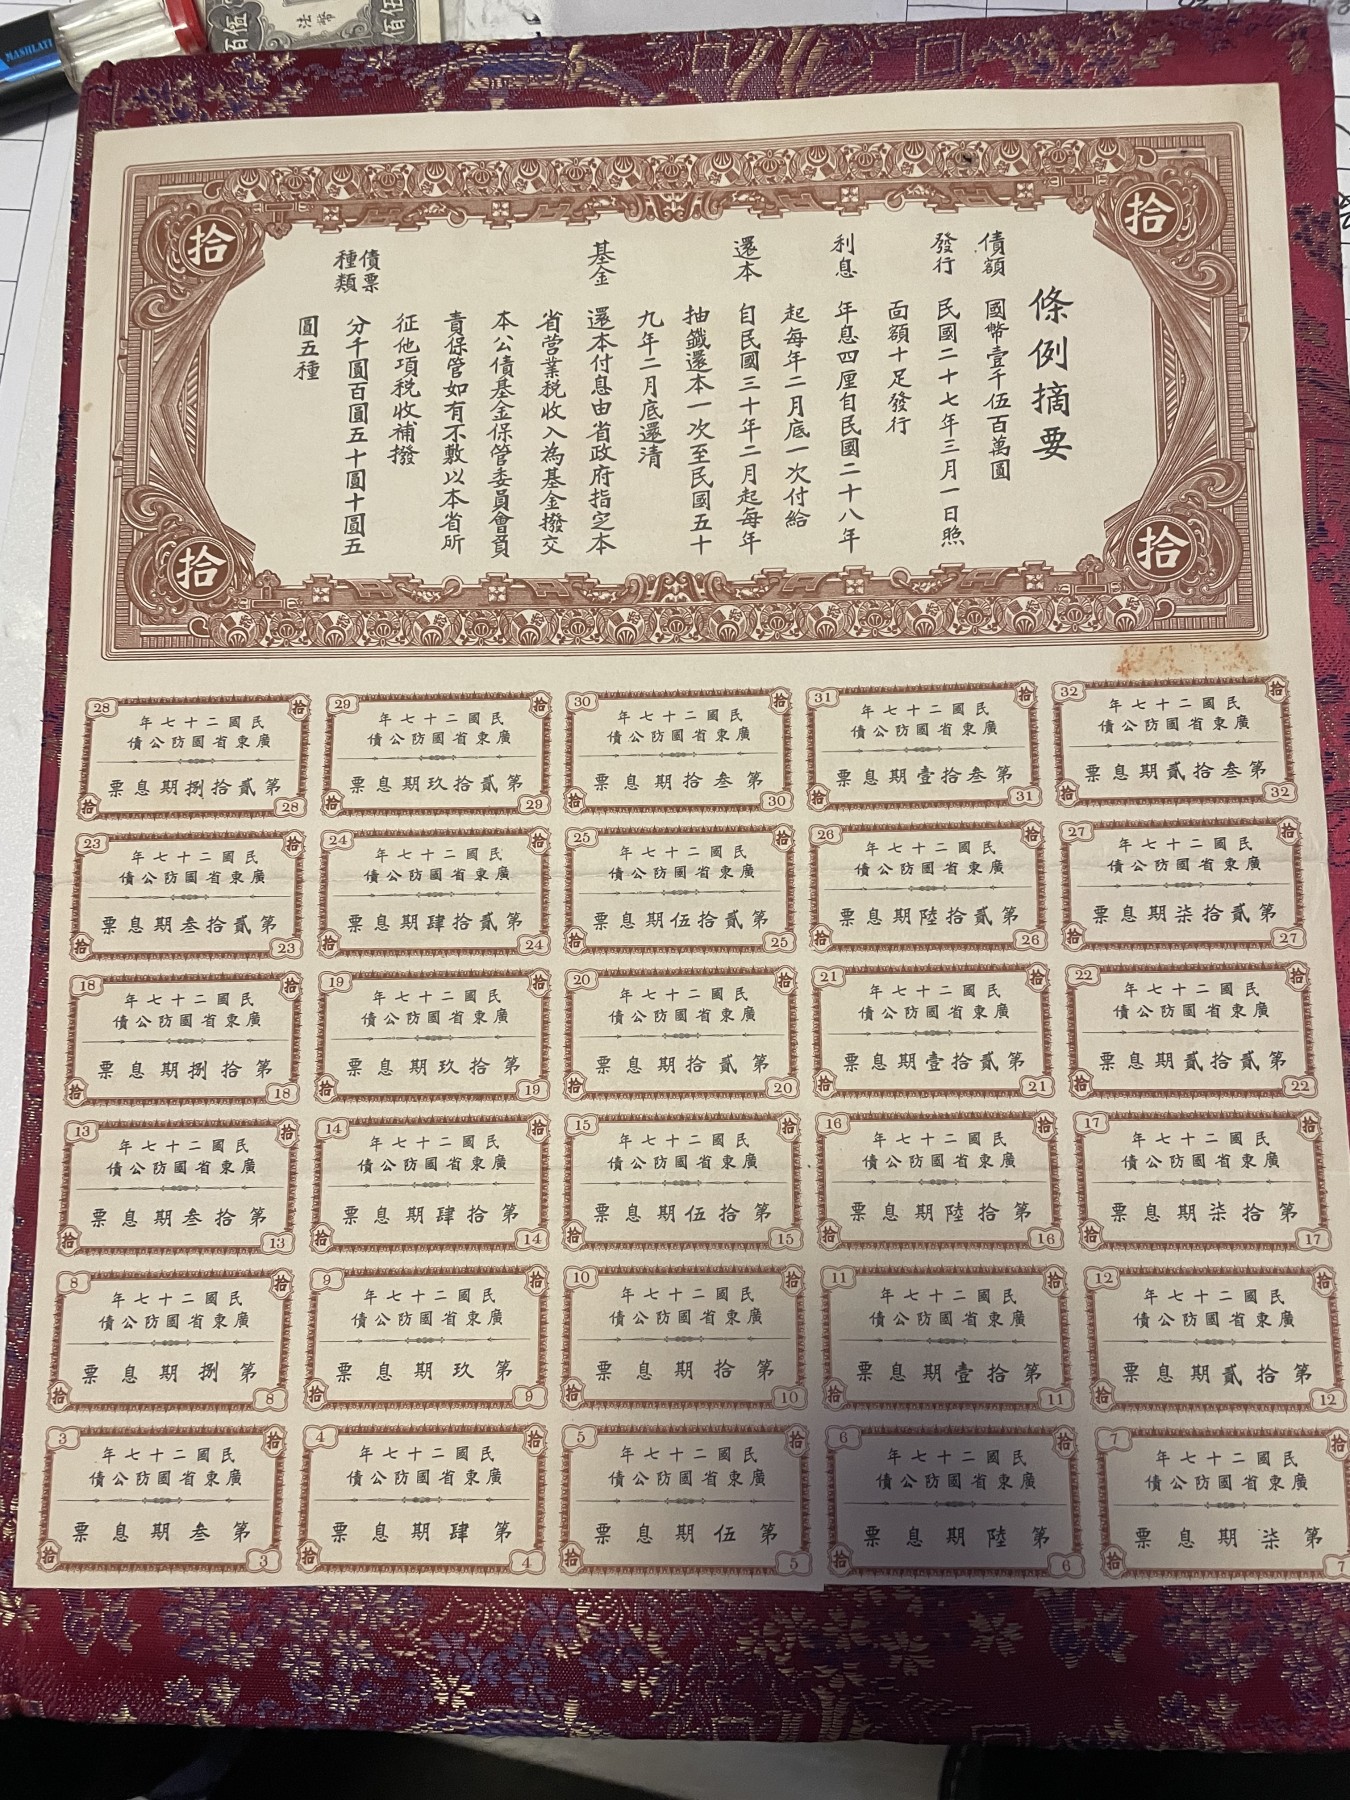 MASHLATI
佰伍
法幣
佰伍
拾
拾
條例摘要
債額
國幣壹千伍百萬圓
發行
民國二十七年三月一日照
面額十足發行
利息
年息四厘自民國二十八年
起每年二月底一次付給
還本
自民國三十年二月起每年
抽籤還本一次至民國五十
九年二月底還清
基金
還本付息由省政府指定本
省营業税收入為基金撥交
本公債基金保管委員會負
責保管如有不敷以本省所
征他項税收補撥
債票
種類
分千圓百圓五十圓十圓五
圓五種
拾
拾
28
拾
年七十二國民
債公防國省東廣
票息期捌拾貳第
拾
28
29
拾
年七十二國民
債公防國省東廣
票息期玖拾貳第
拾
29
30
拾
年七十二國民
債公防國省東廣
票息期拾叁第
拾
30
31
拾
年七十二國民
債公防國省東廣
票息期壹拾叁第
拾
31
32
拾
年七十二國民
債公防國省東廣
票息期貳拾叁第
拾
32
23
拾
年七十二國民
債公防國省東廣
票息期叁拾貳第
拾
23
24
拾
年七十二國民
債公防國省東廣
票息期肆拾貳第
拾
24
25
拾
年七十二國民
債公防國省東廣
票息期伍拾貳第
拾
25
26
拾
年七十二國民
債公防國省東廣
票息期陸拾貳第
拾
26
27
拾
年七十二國民
債公防國省東廣
票息期柒拾貳第
拾
27
18
拾
年七十二國民
債公防國省東廣
票息期捌拾第
拾
18
19
拾
年七十二國民
債公防國省東廣
票息期玖拾第
拾
19
20
拾
年七十二國民
債公防國省東廣
票息期拾貳第
拾
20
21
拾
年七十二國民
債公防國省東廣
票息期壹拾貳第
拾
21
22
拾
年七十二國民
債公防國省東廣
票息期貳拾貳第
拾
22
13
拾
年七十二國民
債公防國省東廣
票息期叁拾第
拾
13
14
拾
年七十二國民
債公防國省東廣
票息期肆拾第
拾
14
15
拾
年七十二國民
債公防國省東廣
票息期伍拾第
拾
15
16
拾
年七十二國民
債公防國省東廣
票息期陸拾第
拾
16
17
拾
年七十二國民
債公防國省東廣
票息期柒拾第
拾
17
8
拾
年七十二國民
債公防國省東廣
票息期捌第
拾
8
9
拾
年七十二國民
債公防國省東廣
票息期玖第
拾
9
10
拾
年七十二國民
債公防國省東廣
票息期拾第
拾
10
11
拾
年七十二國民
債公防國省東廣
票息期壹拾第
拾
11
12
拾
年七十二國民
債公防國省東廣
票息期貳拾第
拾
12
3
拾
年七十二國民
債公防國省東廣
票息期叁第
拾
3
4
拾
年七十二國民
債公防國省東廣
票息期肆第
拾
4
5
拾
年七十二國民
債公防國省東廣
票息期伍第
拾
5
6
拾
年七十二國民
債公防國省東廣
票息期陸第
拾
6
7
拾
年七十二國民
債公防國省東廣
票息期柒第
拾
7